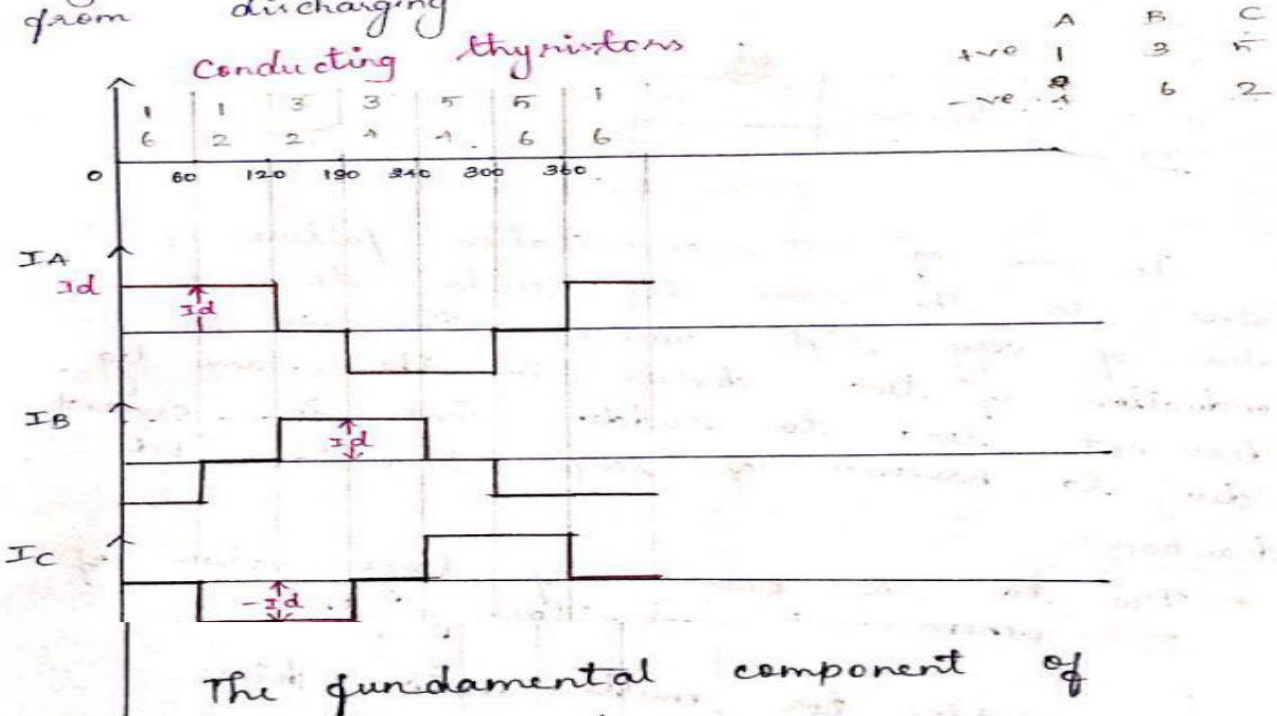 from discharging
Conducting thyristors
A B C
+ve 1 3 5
-ve 4 6 2
1 1 3 3 5 5 1
6 2 2 4 4 6 6
0 60 120 190 240 300 360
IA
Id
Id
IB
Id
IC
-Id
The fundamental component of